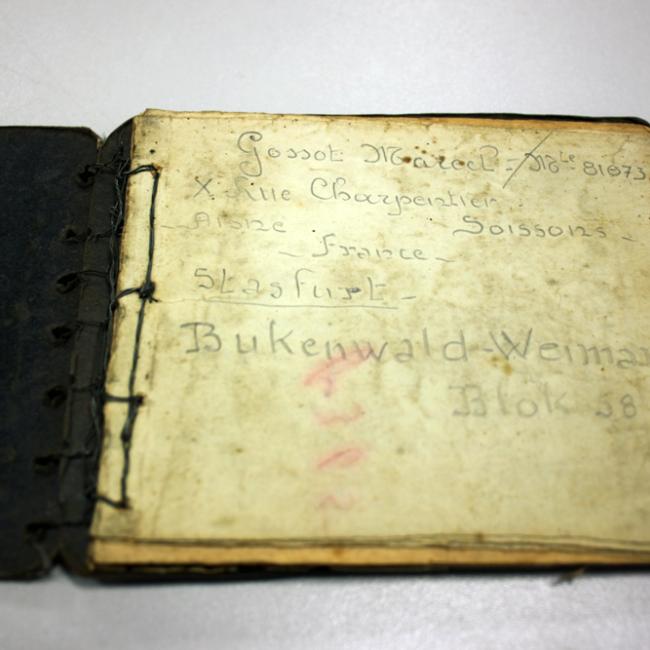 Gossot Marcel - Mle 81073
X Rue Charpentier
- Aisne - Soissons -
- France -
Stasfurt -
Bukenwald-Weimar
Blok 58